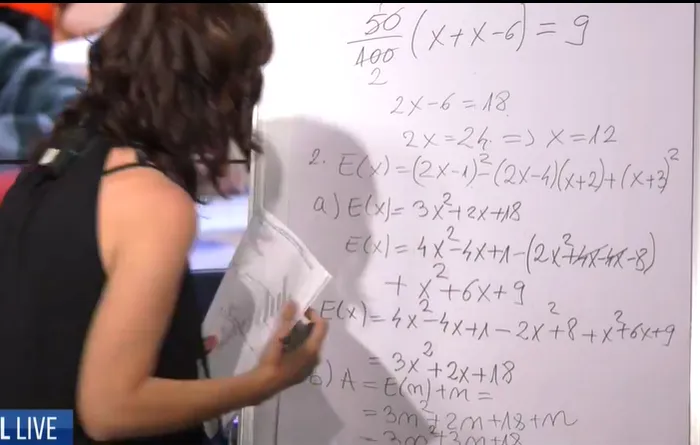 50/100 (x+x-6) = 9
2
2x-6=18
2x=24 => x=12
2. E(x)=(2x-1)²-(2x-4)(x+2)+(x+3)²
a) E(x)= 3x²+2x+18
E(x)= 4x²-4x+1-(2x²+4x-4x-8)
+ x²+6x+9
E(x)= 4x²-4x+1-2x²+8+x²+6x+9
= 3x²+2x+18
b) A = E(m)+m =
= 3m²+2m+18+m
= 3m²+3m+18
L LIVE